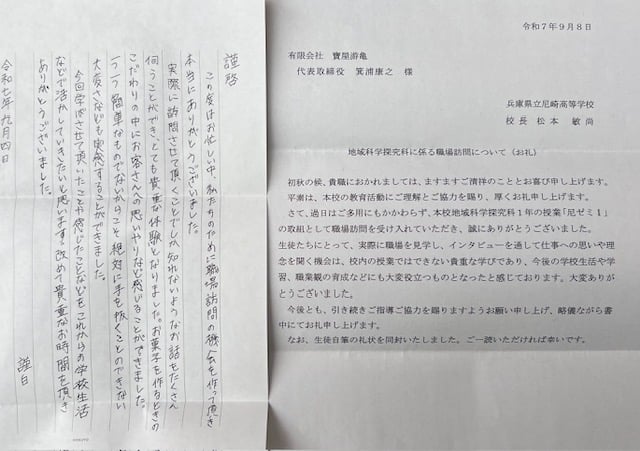 謹啓
この度はお忙しい中、私たちのために職場訪問の機会を作って頂き
本当にありがとうございました。
実際に訪問させて頂くことでしか知れないようなお話をたくさん
伺うことができ、とても貴重な体験となりました。お菓子を作るときの
こだわりの中にお客さんへの思いやりなども感じることができました。
一つ一つ簡単なものでないからこそ絶対に手を抜くことのできない
大変さなども実感することができました。
今回学ばさせて頂いたことや感じたことなどをこれからの学校生活
などで活かしていきたいと思います。改めて貴重なお時間を頂き
ありがとうございました。
謹白
令和七年九月四日
令和7年9月8日
有限会社 寶屋游亀
代表取締役 箕浦康之 様
兵庫県立尼崎高等学校
校長 松本 敏尚
地域科学探究科に係る職場訪問について（お礼）
初秋の候、貴職におかれましては、ますますご清祥のこととお喜び申し上げます。
平素は、本校の教育活動にご理解とご協力を賜り、厚くお礼申し上げます。
さて、過日はご多用にもかかわらず、本校地域科学探究科1年の授業「尼ゼミ1」
の取組として職場訪問を受け入れていただき、誠にありがとうございました。
生徒たちにとって、実際に職場を見学し、インタビューを通して仕事への思いや理
念を聞く機会は、校内の授業ではできない貴重な学びであり、今後の学校生活や学
習、職業観の育成などにも大変役立つものとなったと感じております。大変ありが
とうございました。
今後とも、引き続きご指導ご協力を賜りますようお願い申し上げ、略儀ながら書
中にてお礼申し上げます。
なお、生徒自筆の礼状を同封いたしました。ご一読いただければ幸いです。